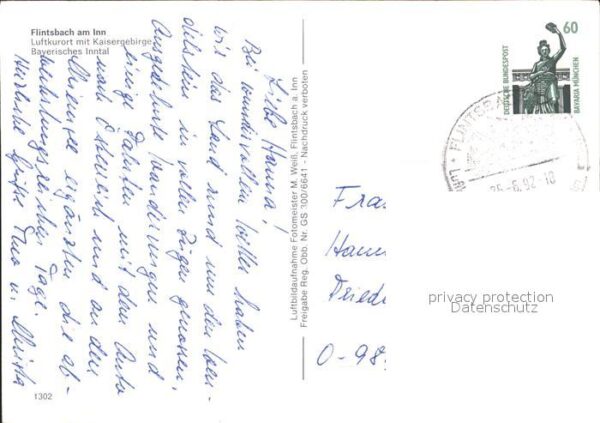 Flintsbach am Inn
Luftkurort mit Kaisergebirge
Bayerisches Inntal
Liebe Hanna!
Bei wundervollem Wetter haben
wir das Land rund um den Wen-
delstein in vollen Zügen genossen.
Ausgedehnte Wanderungen und
einige Fahrten mit dem Auto
nach Österreich und an den
Chiemsee ergänzten die ab-
wechslungsreichen Tage.
Herzliche Grüße Thea u.
1302
Luftbildaufnahme Fotomeister M. Weiß, Flintsbach a. Inn
Freigabe Reg. Obb. Nr. GS 300/6641 - Nachdruck verboten
60
DEUTSCHE BUNDESPOST
BAVARIA MÜNCHEN
FLINTSBA
-6.92-18
Frau
Hann
Friede
O-98
privacy protection
Datenschutz